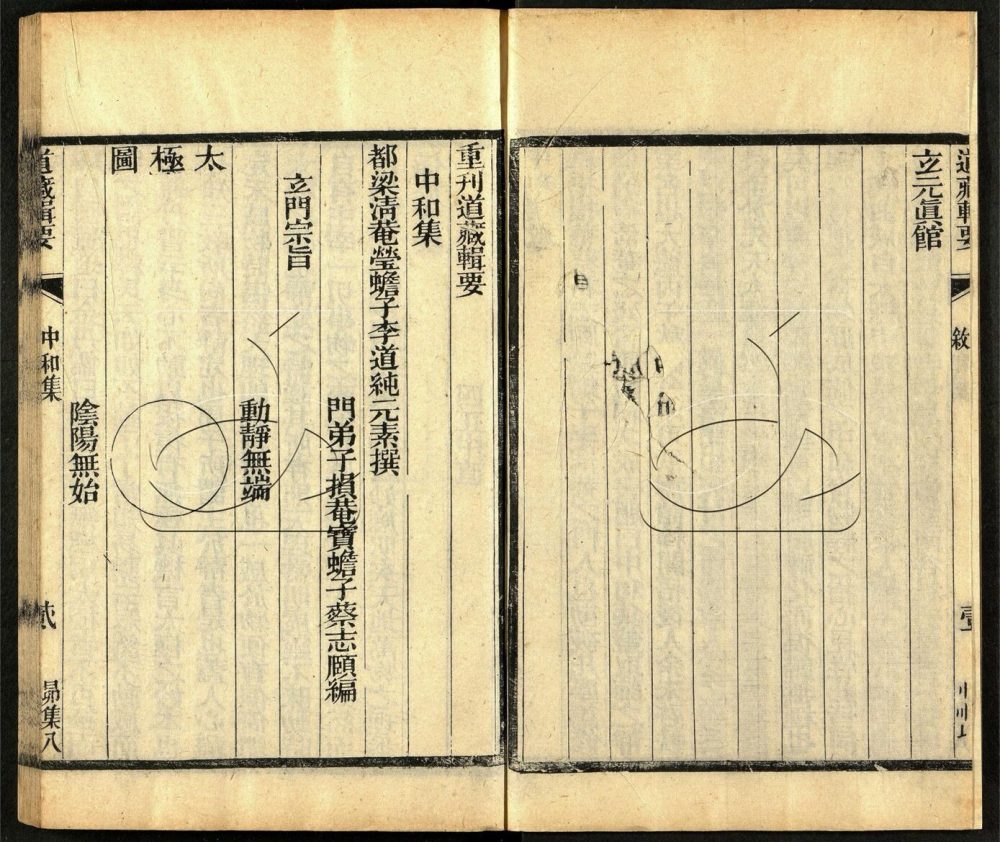 道藏輯要
敘
壹
玄元眞館
重刊道藏輯要
中和集
都梁清菴瑩蟾子李道純元素撰
門弟子損菴寶蟾子蔡志頤編
玄門宗旨
太
極
圖
動靜無端
陰陽無始
道藏輯要
中和集
貳
昴集八